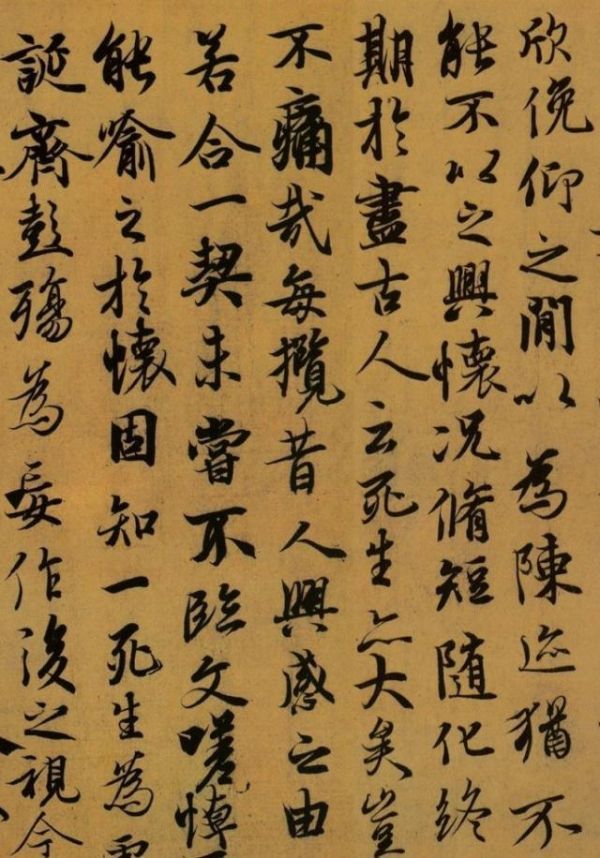 欣俛仰之閒以為陳迹猶不
能不以之興懷况脩短隨化終
期於盡古人云死生亦大矣豈
不痛哉每攬昔人興感之由
若合一契未嘗不臨文嗟悼
能喻之於懷固知一死生為虛
誕齊彭殤為妄作後之視今